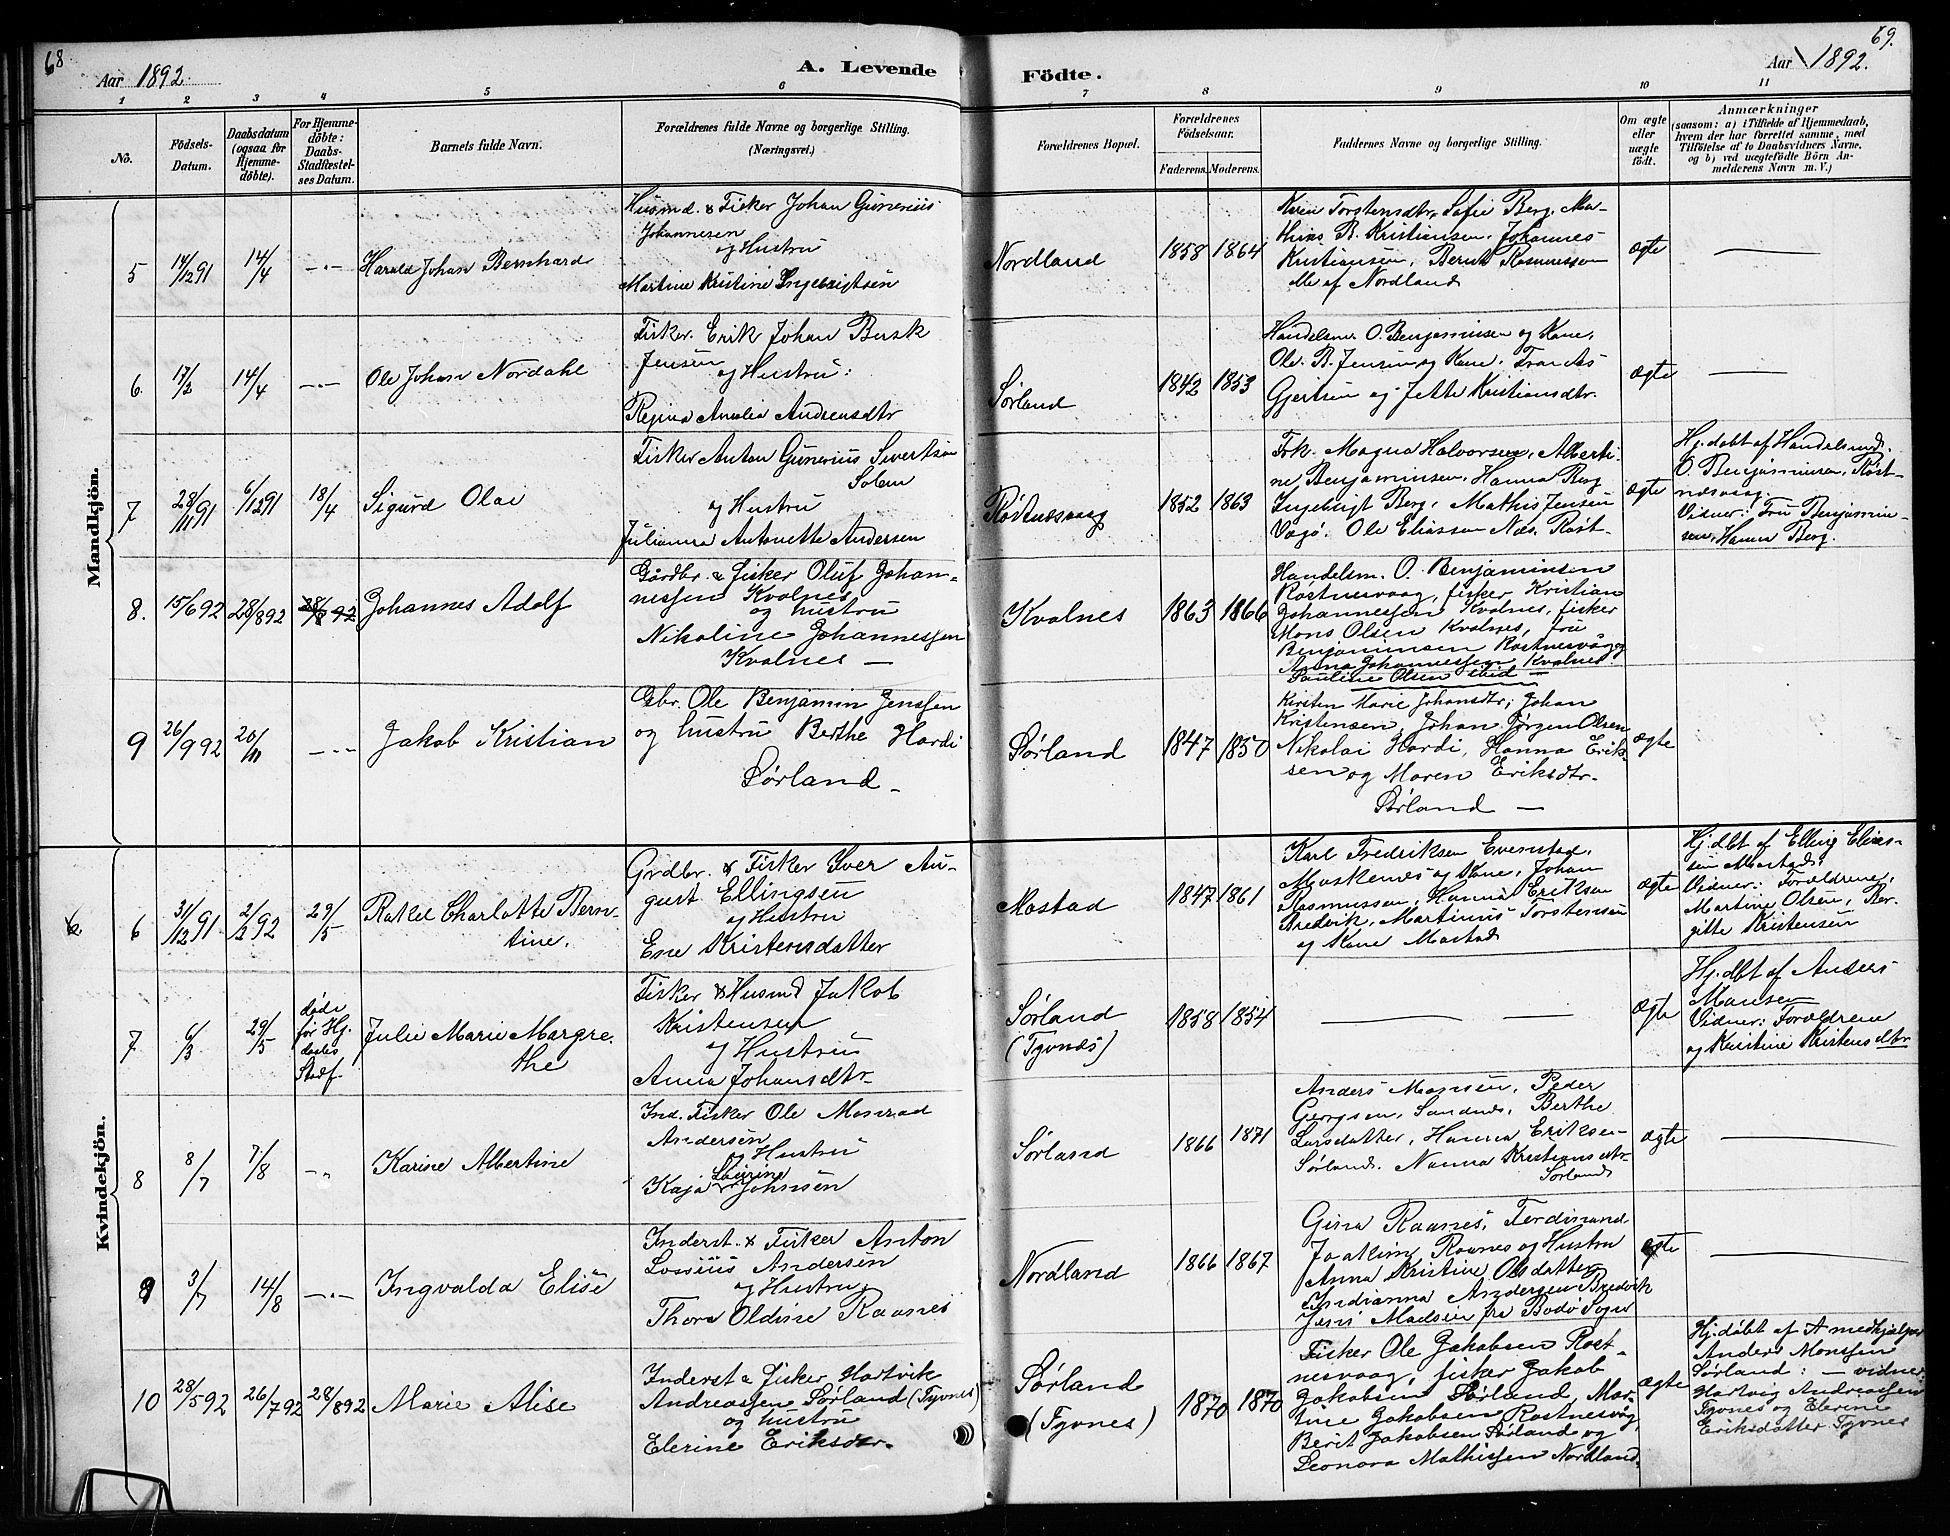 68
Aar 1892.
A. Levende
Födte.
Aar 1892.
69.
1 2 3 4 5 6 7 8 9 10 11
No.
Födsels-
Datum.
Daabsdatum
(ogsaa för
Hjemme-
döbte).
For Hjemme-
döbte:
Daabs-
Stadfæstel-
ses Datum.
Barnets fulde Navn.
Forældrenes fulde Navne og borgerlige Stilling.
(Næringsvei.)
Forældrenes Bopæl.
Forældrenes
Födselsaar.
Faderens. Moderens.
Faddernes Navne og borgerlige Stilling.
Om ægte
eller
uægte
födt.
Anmærkninger
(saasom: a) i Tilfælde af Hjemmedaab,
hvem der har forrettet samme, med
Tilföielse af to Daabsvidners Navne,
og b) ved uægtefödte Börn An-
melderens Navn m. V.)
Mandkjön.
5
14/12 91
14/4
—"—
Harald Johan Bernhard
Husmd. & Fisker Johan Gunerius
Johannesen
og Hustru
Martine Kristine Ingebrigtsen
Nordland
1858 1864
Karen Torstensdtr, Sofie Berg, Ma-
thias B. Kristiansen, Johannes
Kristiansen, Bernt Rasmussen
alle af Nordland
ægte
—
6.
17/2
14/4
—"—
Ole Johan Nordahl
Fisker Erik Johan Busk
Jensen
og Hustru:
Regina Amalia Andreasdtr
Sørland
1842 1853
Handelsm. O. Benjaminsen og Kone,
Ole B. Jensen og Kone, Frants
Gjertsen og Jette Kristiansdtr.
ægte
—
7
28/11 91
6/12 91
18/4
Sigurd Olai
Fisker Anton Gunerius Sivertsen
Solem
og Hustru
Julianna Antonette Andersen
Røstnesvaag
1852 1863
Frk. Magna Halvorsen, Alberti-
ne Benjaminsen, Hanna Berg
Ingebrigt Berg, Mathis Jensen
Vagø. Ole Eliassen Næs. Røst-
ægte
Hj.døbt af Handelsmd.
O. Benjaminsen, Røst-
næsvaag.
Vidner: Fru Benjamin-
sen, Hanna Berg.
8.
15/6 92
28/8 92
28/8 92
Johannes Adolf
Gårdbr. & fisker Oluf Johan-
nessen Kvalnes
og hustru
Nikoline Johannessen
Kvalnes —
Kvalnes
1863 1866
Handelsm. O. Benjaminsen
Røstnesvaag, fisker Kristian
Johannessen Kvalnes, fisker
Mons Olsen Kvalnes, fru
Benjaminsen Røstnesvåg og
Anna Johannessen Kvalnes
Pauline Olsen ibid —
9
26/9 92
20/11
—"—
Jakob Kristian
Gbr. Ole Benjamin Jenssen
og hustru Berthe Hardi
Sørland —
Sørland
1847 1850
Kirsten Marie Johansdtr, Johan
Kristensen, Johan Jørgen Olsen
Nikolai Hardi, Hanna Erik-
sen og Maren Eriksdtr.
Sørland —
ægte
Kvindekjön.
6
31/12 91
2/2 92
29/5
Rakel Charlotte Bern-
tine.
Grdbr. & Fisker Iver Au-
gust Ellingsen
og Hustru
Ene Kristensdatter
Mostad
1847 1861
Karl Fredriksen Evenstad,
Moskenes og Kone, Johan
Rasmussen, Hanna Eriksen
Bredvik, Martinus Torstensen
og Kone Mostad
ægte
Hj.dbt af Elling Elias-
sen Mostad.
Vidner: Forældrene,
Martine Olsen, Ber-
gitte Kristensen
7
6/3
29/5
døde
før Hj.
daabs
Stadf.
Julie Marie Margre-
the
Fisker & Husmd Jakob
Kristensen
og Hustru
Anna Johansdtr
Sørland
(Tyvnes)
1858 1854
— —
ægte
Hj.dbt af Anders
Monsen
Vidner: Forældrene
og Kristine Kristensdtr
8
8/7
7/8
—"—
Karine Albertine
Ind. Fisker Ole Monrad
Andersen
og Hustru
Kaja Lovrine Johnsen
Sørland
1866 1871
Anders Monsen, Peder
Gergsen, Sandnes, Berthe
Larsdatter, Hanna Eriksen
Sørland. Nanna Kristiansdtr
Sørland
ægte
—
9
3/7
14/8
—"—
Ingvalda Elise
Inderst. & Fisker Anton
Lossius Andersen
og Hustru
Thora Oldine Raanes
Nordland
1866 1867
Gina Raanes, Ferdinand
Joakim Raanes og Hustru
Anna Kristine Olsdatter
Indianna Andersen Bredvik
Jens Madsen fra Bodø Sogn
ægte
—
10
28/5 92
26/7 92
28/8 92
Marie Alise
Inderst & fisker Hartvik
Andreassen Sørland (Tyvnes)
og hustru
Elerine Eriksdtr.
Sørland
(Tyvnes)
1870 1870
Fisker Ole Jakobsen Røst-
nesvaag, fisker Jakob
Jakobsen Sørland, Mar-
tine Jakobsen Røstnesvåg,
Berit Jakobsen Sørland og
Leonora Mathissen Nordland.
ægte
Hj.døbt af A medhjælper
Anders Monssen
Sørland: — vidner:
Hartvig Andreassen
Tyvnes og Elerine
Eriksdatter Tyvnes